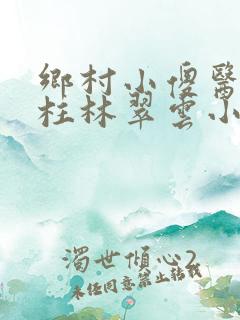 鄉村小傻醫
柱林翠雲小
濁世傾心2
未任同意禁止轉載